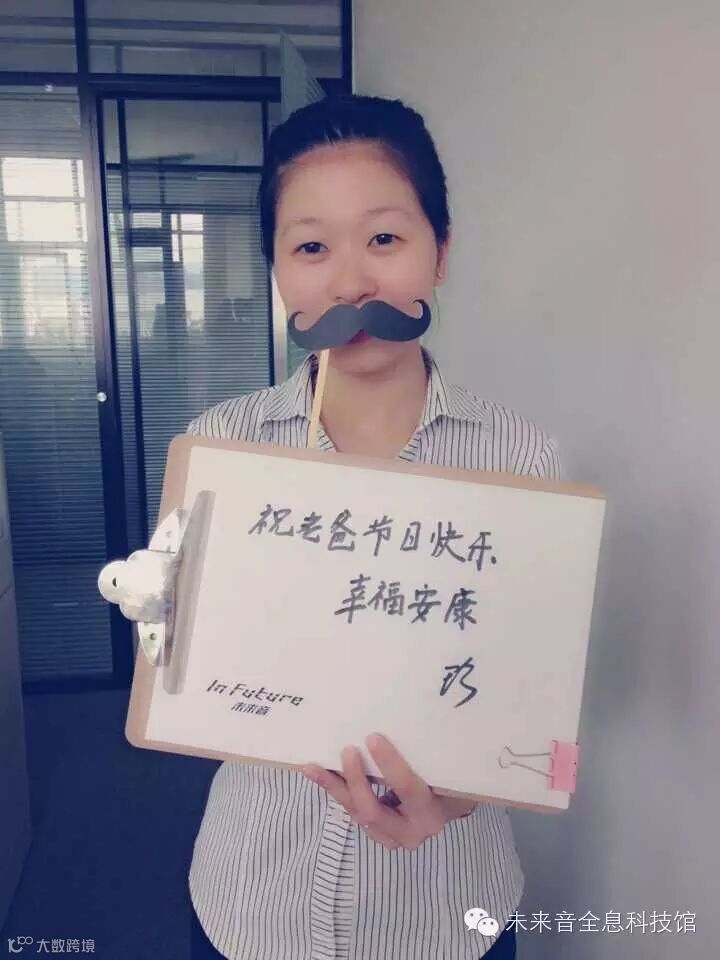 祝老爸节日快乐
幸福安康
玢
In Future
未来音
未来音全息科技馆
大数跨境